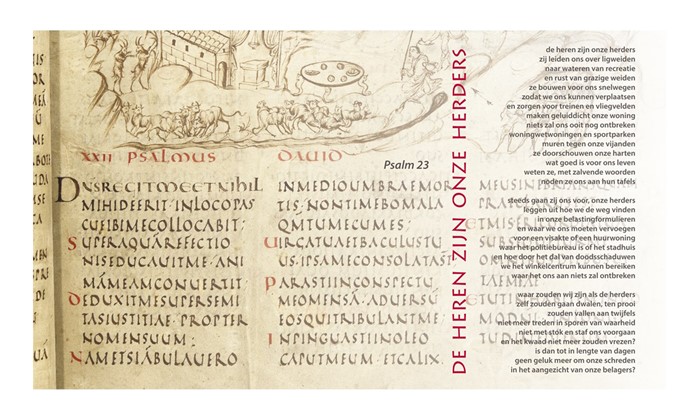 XXII PSALMUS
DAVID
Psalm 23
DNSRECITMEETNIHIL
MIHIDEERITINLOCOPAS
CUEIBIMECOLLOCABIT;
SUPERAQUAREFECTIO
NISEDUCAUITME·ANI
MÁMEAMCONUERTIT;
DEDUXITMESUPERSEMI
TASIUSTITIAE·PROPTER
NOMENSUUM;
NAMETSIÁBULAUERO
INMEDIOUMBRAEMOR
TIS·NONTIMEBOMALA
QMTUMECUMES;
UIRGATUAETBACULUSTU
US·IPSAMECONSOLATAST
PARASTIINCONSPECTU
MEOMENSÁ·ADUERSÚ
EOSQUITRIBULANTME;
INPINGUASTIINOLEO
CAPUTMEUM·ETCALIX·
DE HEREN ZIJN ONZE HERDERS
de heren zijn onze herders
zij leiden ons over ligweiden
naar wateren van recreatie
en rust van grazige weiden
ze bouwen voor ons snelwegen
zodat we ons kunnen verplaatsen
en zorgen voor treinen en vliegvelden
maken geluiddicht onze woning
niets zal ons ooit nog ontbreken
woningwetwoningen en sportparken
muren tegen onze vijanden
ze doorschouwen onze harten
wat goed is voor ons leven
weten ze, met zalvende woorden
noden ze ons aan hun tafels
steeds gaan zij ons voor, onze herders
leggen uit hoe we de weg vinden
in onze belastingformulieren
en waar we ons moeten vervoegen
voor een visakte of een huurwoning
waar het politiebureau is of het stadhuis
en hoe door het dal van doodsschaduwen
we het winkelcentrum kunnen bereiken
waar het ons aan niets zal ontbreken
waar zouden wij zijn als de herders
zelf zouden gaan dwalen, ten prooi
zouden vallen aan twijfels
niet meer treden in sporen van waarheid
niet met stok en staf ons voorgaan
en het kwaad niet meer zouden vrezen?
is dan tot in lengte van dagen
geen geluk meer om onze schreden
in het aangezicht van onze belagers?